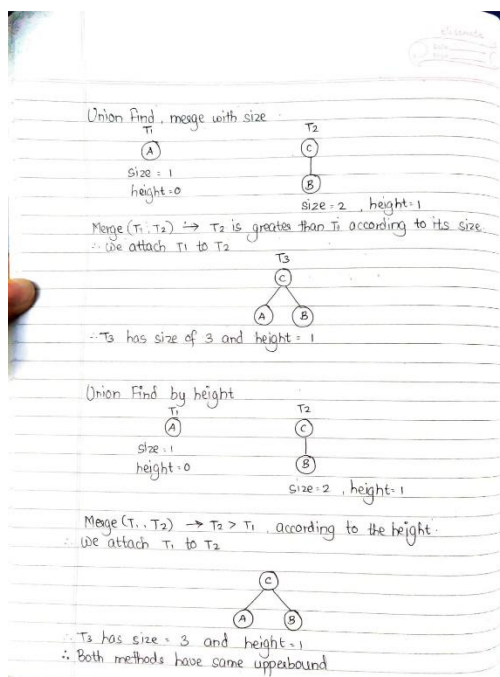 Union Find, merge with size
T1
T2
A
C
B
size = 1
height = 0
size = 2 , height = 1
Merge (T1, T2) → T2 is greater than T1 according to its size
∴ we attach T1 to T2
T3
C
A B
∴ T3 has size of 3 and height = 1
Union Find by height
T1
T2
A
C
B
size = 1
height = 0
size = 2 , height = 1
Merge (T1, T2) → T2 > T1 , according to the height.
∴ we attach T1 to T2
C
A B
∴ T3 has size = 3 and height = 1
∴ Both methods have same upperbound